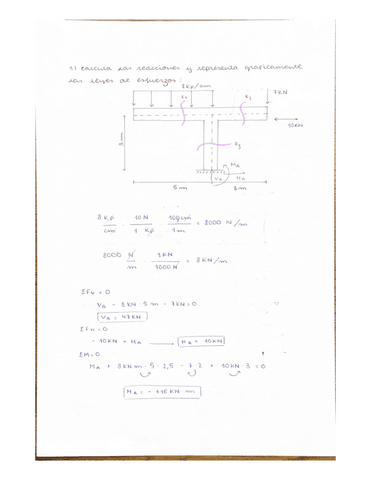 1) Calcula las reacciones y representa graficamente
las leyes de esfuerzos:
8Kp/cm
7KN
10KN
3m
MA
HA
VA
5m 2m
8Kp/cm · 10N/1Kp · 100cm/1m = 8000 N/m
8000 N/m · 1KN/1000N = 8KN/m
ΣFv = 0
VA - 8KN · 5m - 7KN = 0
VA = 47KN
ΣFH = 0
- 10KN + HA → HA = 10KN
ΣM = 0
MA + 8KNm · 5 · 2,5 - 7 · 2 + 10KN · 3 = 0
MA = - 116 KN m